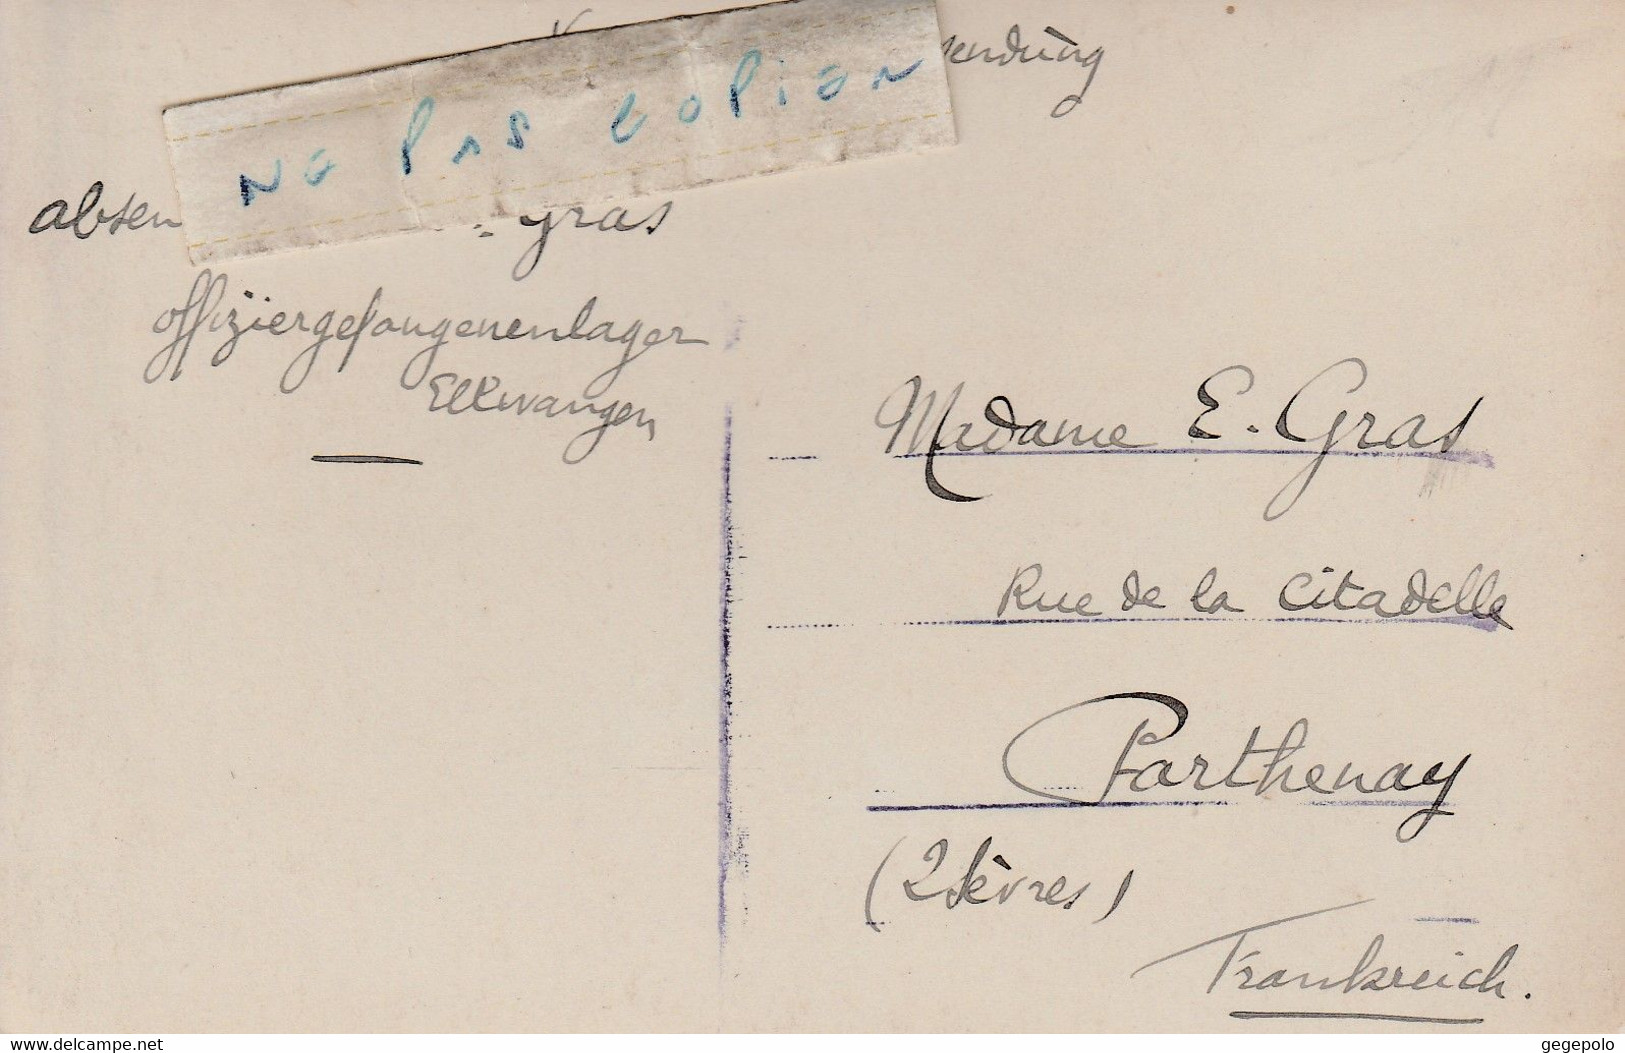 sendùng
Ne Pas copier
absen
. Gras
offiziergefangenenlager
Ellwangen
Madame E. Gras
Rue de la Citadelle
Parthenay
(2 Sèvres)
Frankreich.
www.delcampe.net
gegepolo